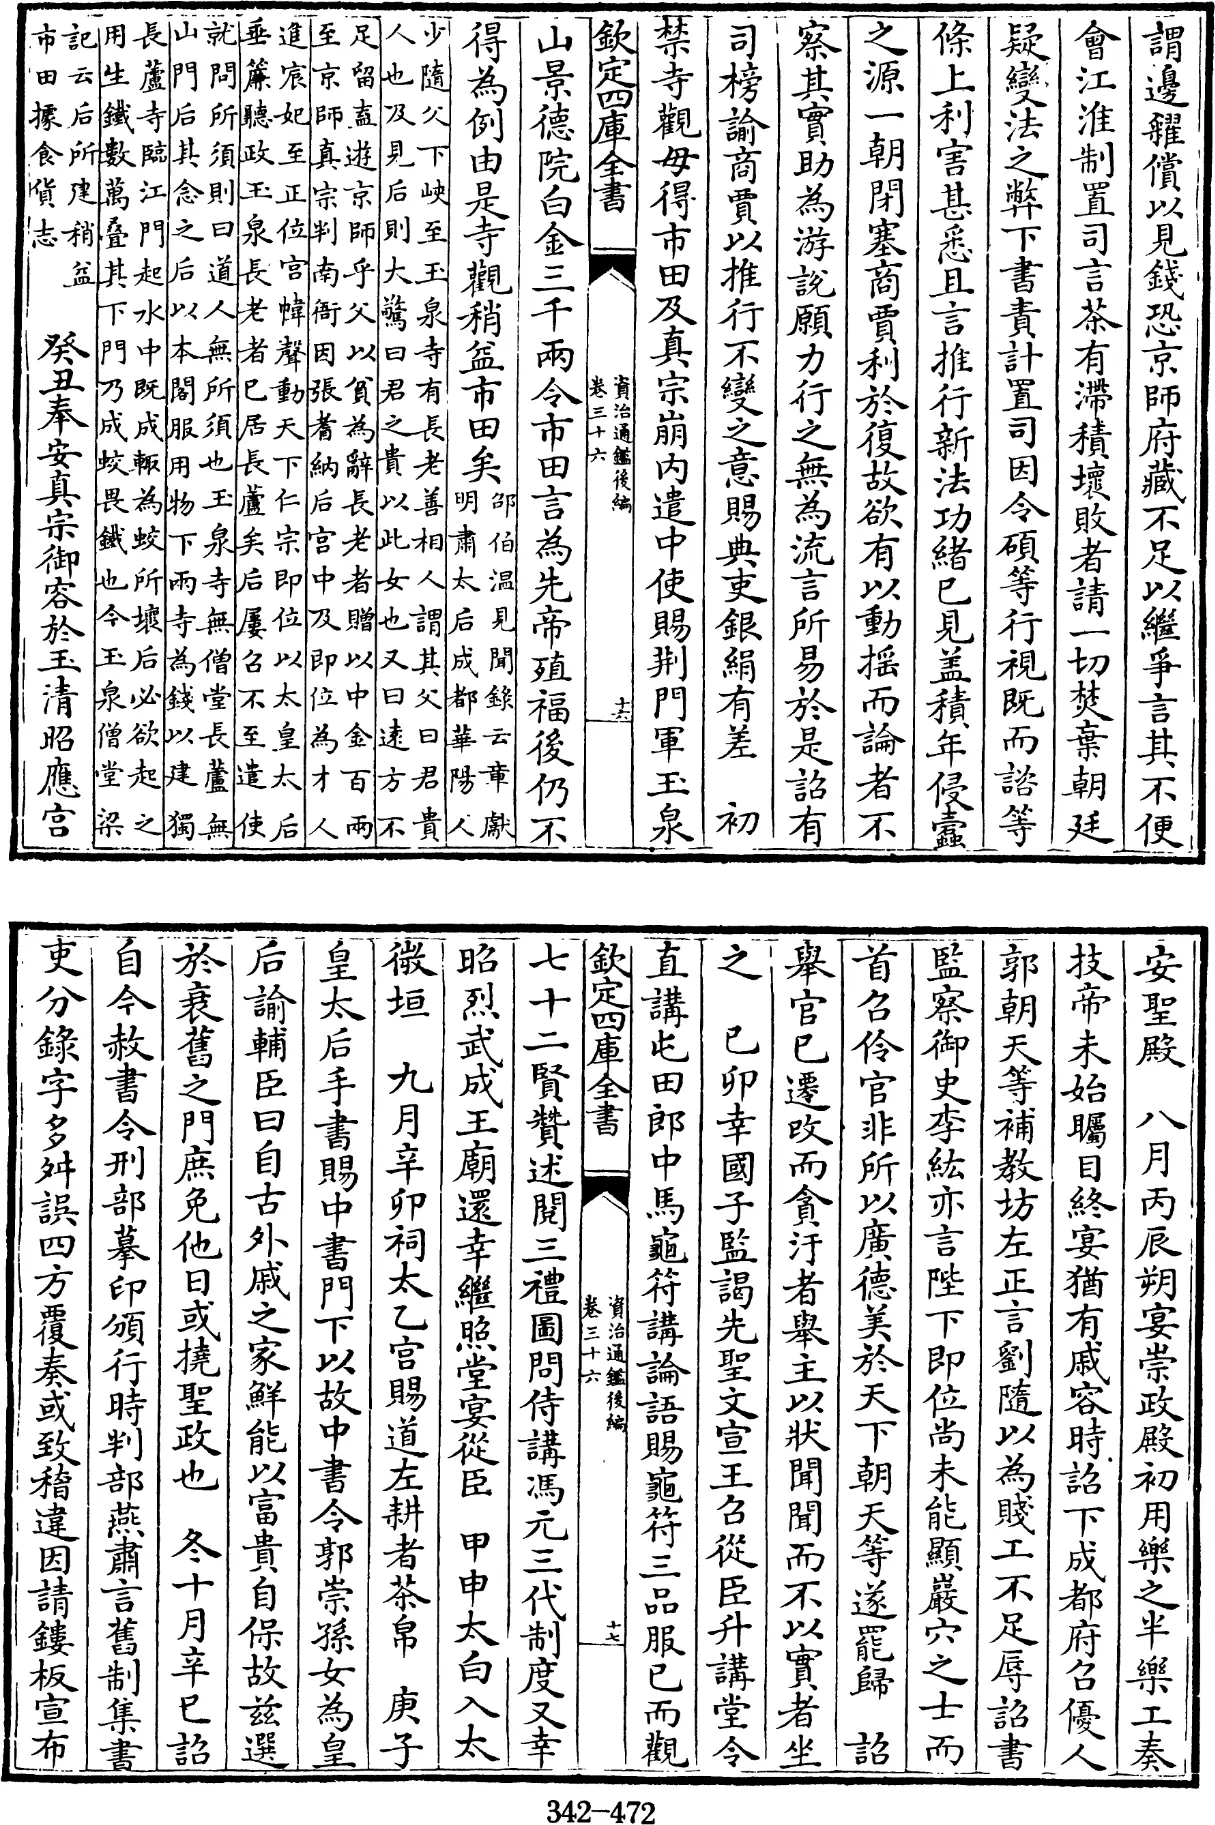 謂邊糴償以見錢恐京師府藏不足以繼爭言其不便
會江淮制置司言茶有滯積壞敗者請一切焚棄朝廷
疑變法之弊下書責計置司因令碩等行視既而諮等
條上利害甚悉且言推行新法功緒已見盖積年侵蠧
之源一朝閉塞商賈利於復故欲有以動揺而論者不
察其實助為游說願力行之無為流言所易於是詔有
司榜諭商賈以推行不變之意賜典吏銀絹有差　初
禁寺觀毋得市田及真宗崩内遣中使賜荆門軍玉泉
欽定四庫全書
資治通鑑後編
卷三十六
十六
山景德院白金三千兩令市田言為先帝殖福後仍不
得為例由是寺觀稍益市田矣
邵伯溫見聞錄云章獻
明肅太后成都華陽人
少隨父下峽至玉泉寺有長老善相人謂其父曰君貴
人也及見后則大驚曰君之貴以此女也又曰逺方不
足留盍遊京師乎父以貧為辭長老者贈以中金百兩
至京師真宗判南衙因張耆納后宫中及即位為才人
進宸妃至正位宫幃聲動天下仁宗即位以太皇太后
垂簾聽政玉泉長老者已居長蘆矣后屢召不至遣使
就問所須則曰道人無所須也玉泉寺無僧堂長蘆無
山門后其念之后以本閣服用物下兩寺為錢以建獨
長蘆寺臨江門起水中既成輙為蛟所壞后必欲起之
用生鐵數萬叠其下門乃成蛟畏鐵也今玉泉僧堂梁
記云后所建稍益
市田據食貨志
癸丑奉安真宗御容於玉清昭應宫
安聖殿　八月丙辰朔宴崇政殿初用樂之半樂工奏
技帝未始矚目終宴猶有戚容時詔下成都府召優人
郭朝天等補教坊左正言劉隨以為賤工不足辱詔書
監察御史李紘亦言陛下即位尚未能顯巖穴之士而
首召伶官非所以廣德美於天下朝天等遂罷歸　詔
舉官已遷改而貪汙者舉主以狀聞聞而不以實者坐
之　已卯幸國子監謁先聖文宣王召從臣升講堂令
直講屯田郎中馬龜符講論語賜龜符三品服已而觀
欽定四庫全書
資治通鑑後編
卷三十六
十七
七十二賢贊述閱三禮圖問侍講馮元三代制度又幸
昭烈武成王廟還幸繼照堂宴從臣　甲申太白入太
微垣　九月辛卯祠太乙宫賜道左耕者茶帛　庚子
皇太后手書賜中書門下以故中書令郭崇孫女為皇
后諭輔臣曰自古外戚之家鮮能以富貴自保故兹選
於衰舊之門庶免他日或撓聖政也　冬十月辛巳詔
自今赦書令刑部摹印頒行時判部燕肅言舊制集書
吏分錄字多舛誤四方覆奏或致稽違因請鏤板宣布
342-472